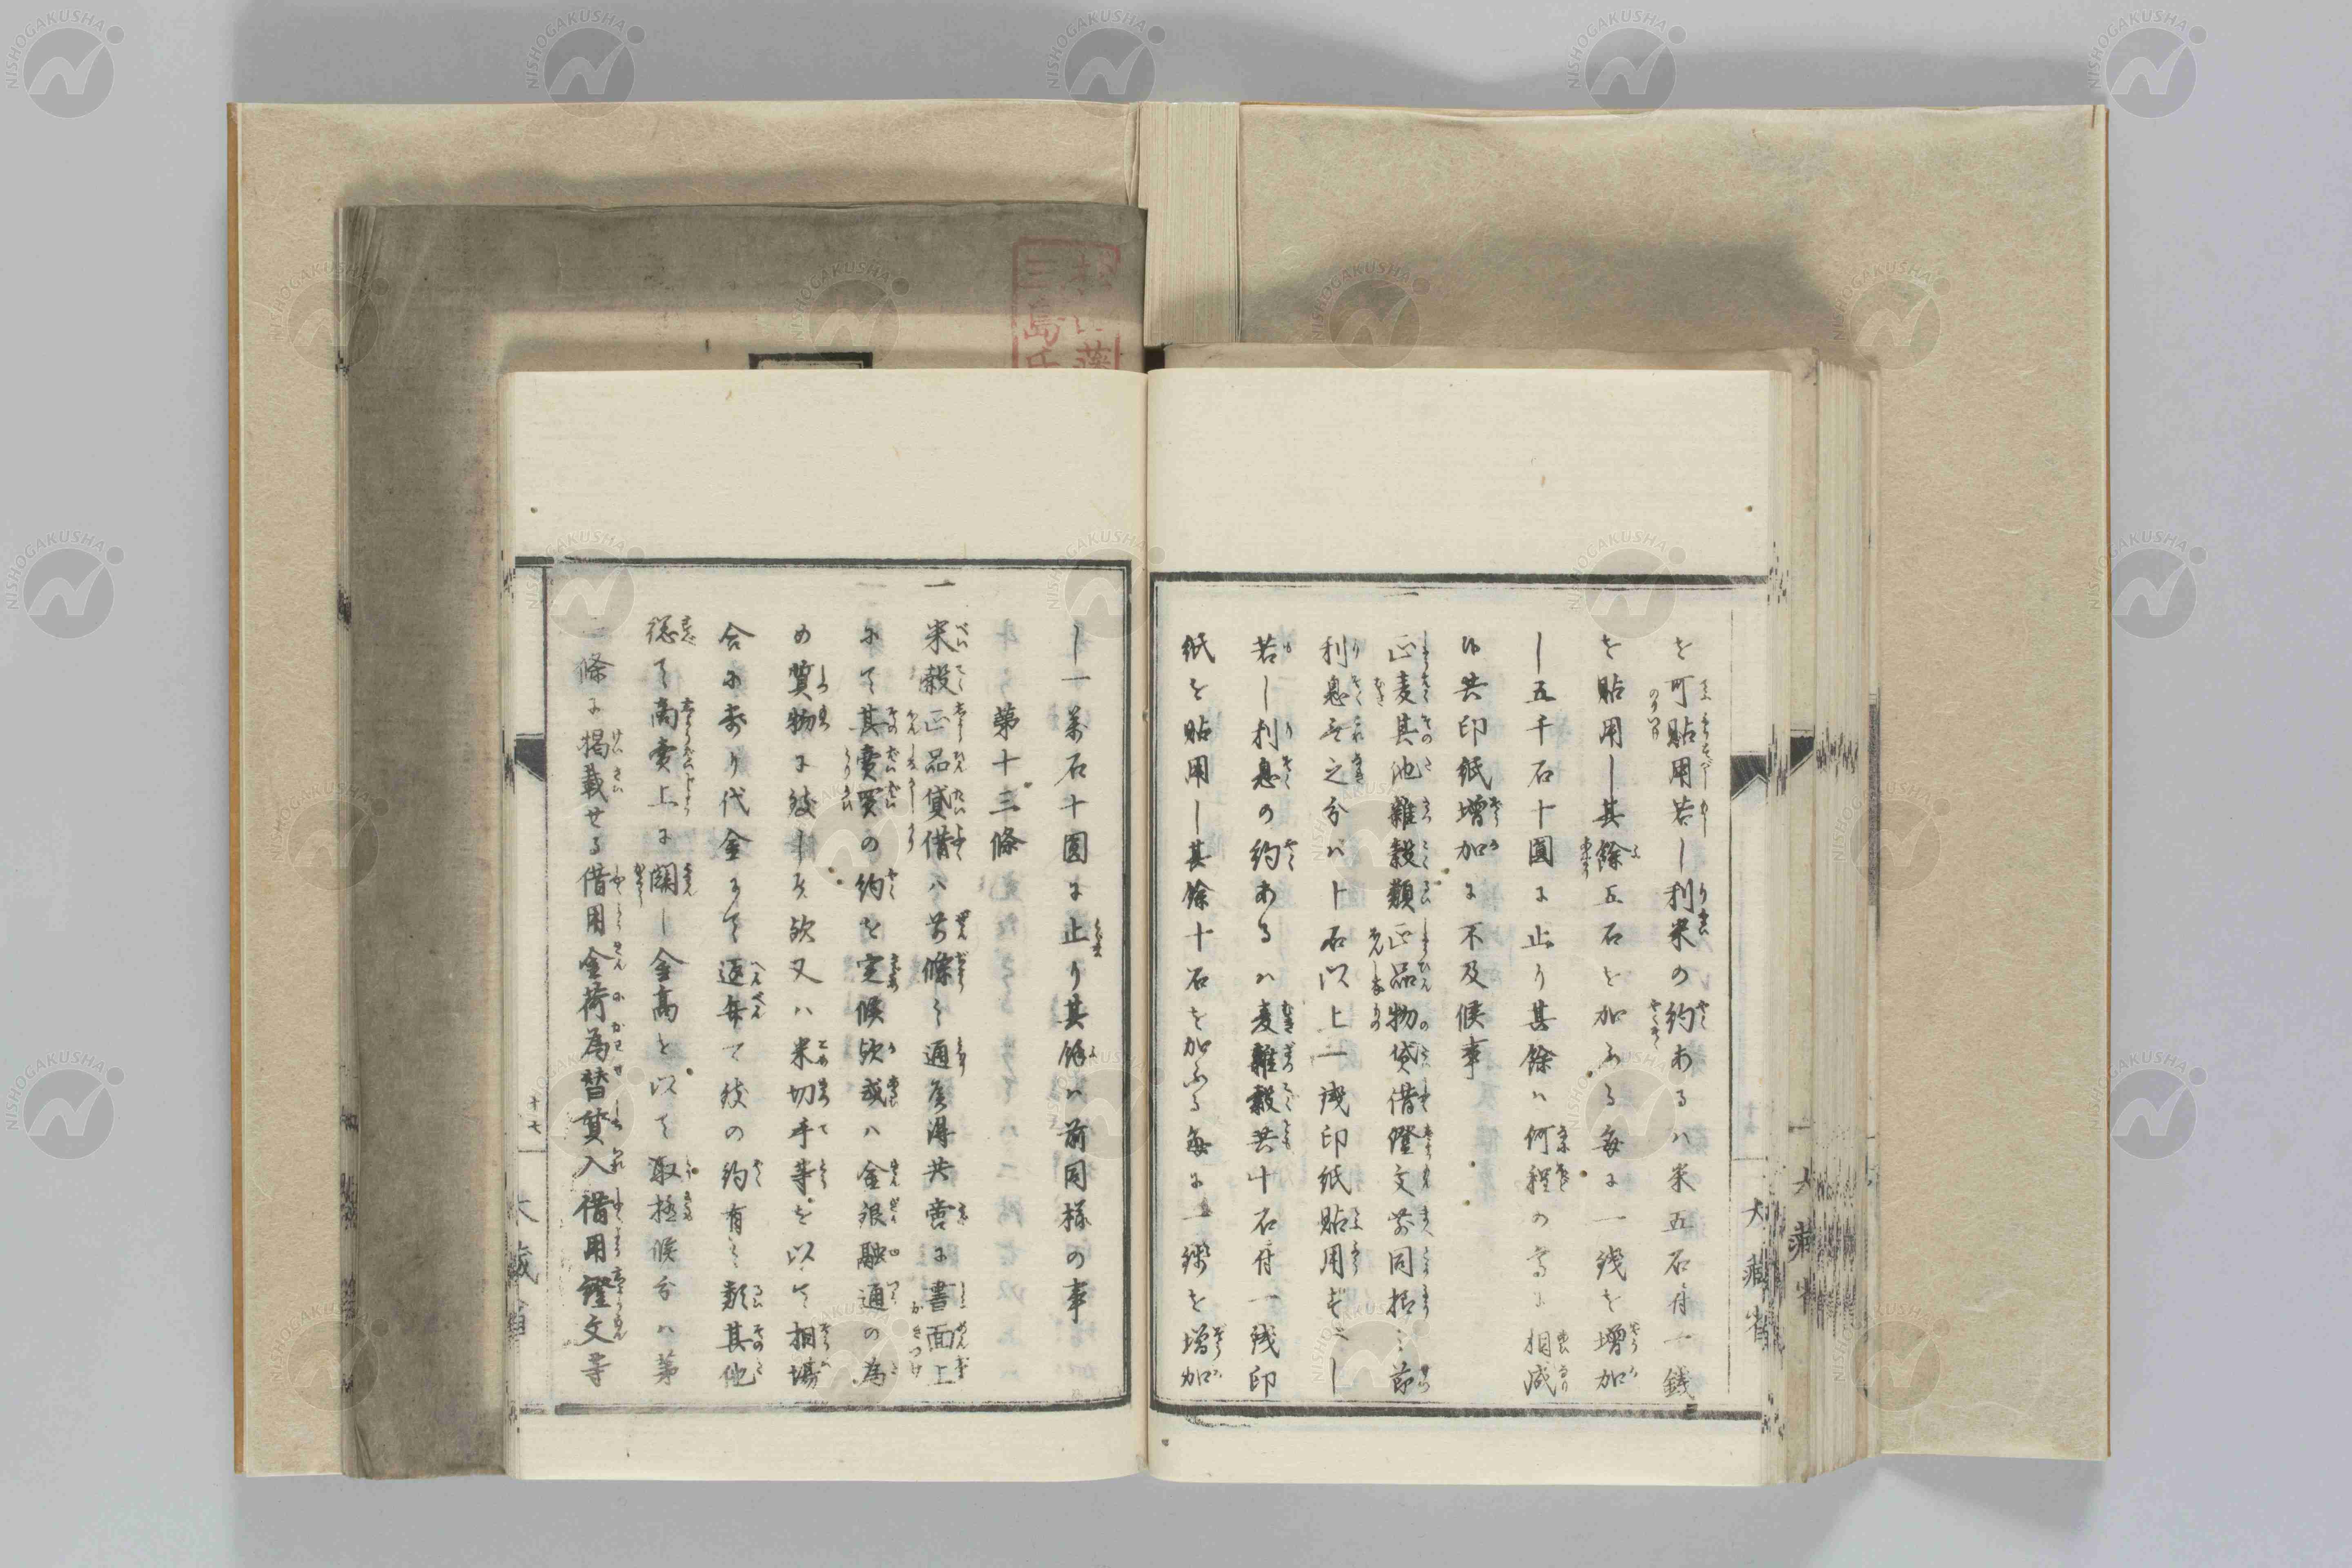 を可貼用若し利米の約あるハ米五石付一銭
を貼用し其餘五石を加ふる毎に一銭を増加
し五千石十圓に止り其餘ハ何程の高に相成
候共印紙増加に不及候事
正麦其他雑穀類正品物貸借證文前同格之節
利息無之分ハ十石以上一銭印紙貼用すべし
若し利息の約あるハ麦雑穀共十石付一銭印
紙を貼用し其餘十石を加ふる毎に一銭を増加
し一萬石十圓に止り其餘ハ前同様の事
第十三條
一 米穀正品貸借ハ前條之通候得共書面上
にて其賣買の約を定候欤或ハ金銀融通の為
め質物に致し候欤又ハ米切手等を以て相場
合に寄り代金にて返弁可致の約有之類其他
総て商賣上に関し金高を以て取極候分ハ第
二條に掲載せる借用金荷為替質入借用證文等
十七
大蔵省
大藏省
NISHOGAKUSHA